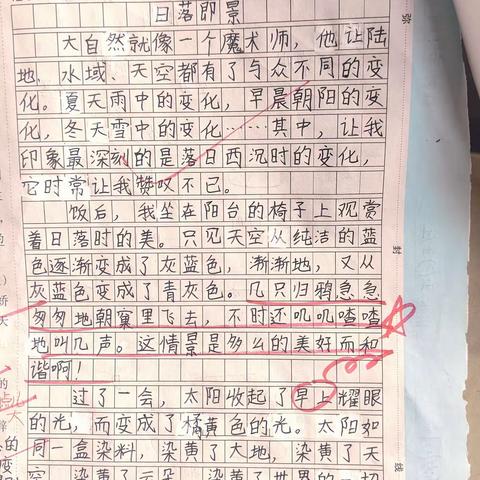 日落即景
大自然就像一个魔术师，他让陆
地、水域、天空都有了与众不同的变
化。夏天雨中的变化，早晨朝阳的变
化，冬天雪中的变化……其中，让我
印象最深刻的是落日西沉时的变化，
它时常让我赞叹不已。
饭后，我坐在阳台的椅子上观赏
着日落时的美。只见天空从纯洁的蓝
色逐渐变成了灰蓝色，渐渐地，又从
灰蓝色变成了青灰色。几只归鸦急急
匆匆地朝窝里飞去，不时还叽叽喳喳
地叫几声。这情景是多么的美好而和
谐啊！
过了一会，太阳收起了早上耀眼
的光，而变成了橘黄色的光。太阳如
同一盒染料，染黄了大地，染黄了天
空，染黄了云朵，染黄了世界的一切
弥
封
线